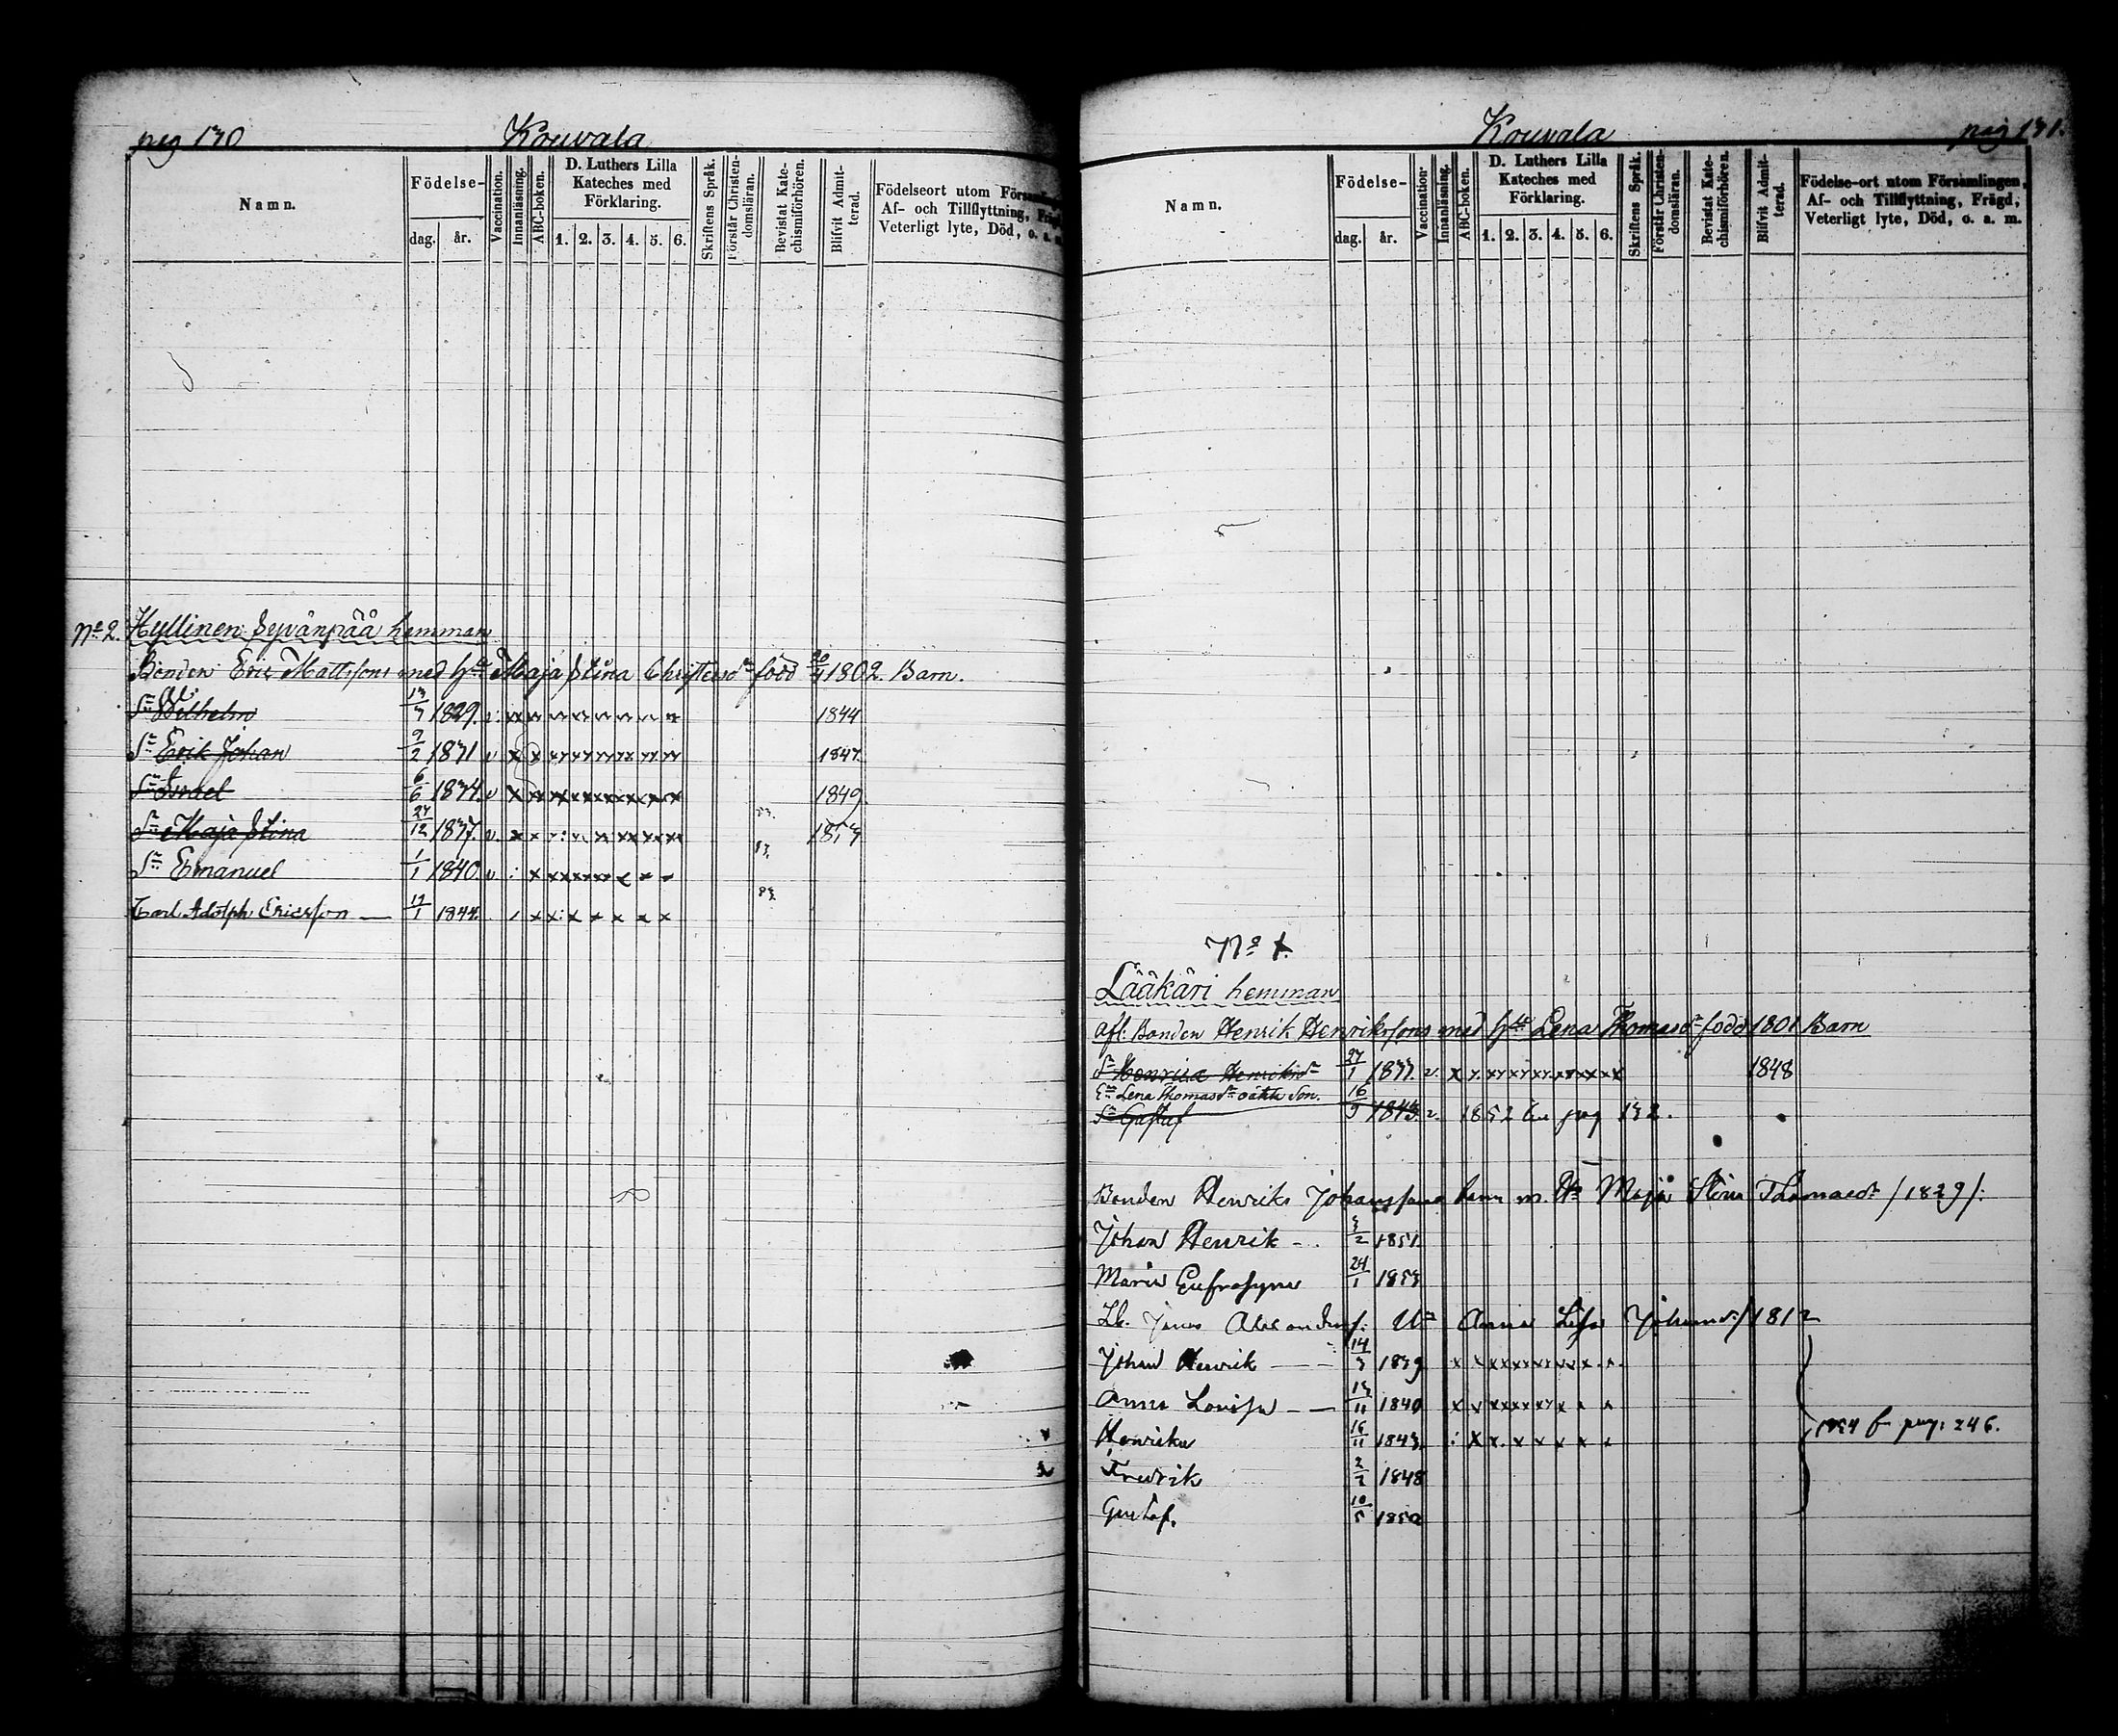 pag 130
Kouvala
Namn.
Födelse-
dag. år.
Vaccination.
Innanläsning.
ABC-boken.
D. Luthers Lilla
Kateches med
Förklaring.
1. 2. 3. 4. 5. 6.
Skriftens Språk.
Förstår Christen-
domsläran.
Bevistat Kate-
chismiförhören.
Blifvit Admit-
terad.
Födelseort utom Församlingen,
Af- och Tillflyttning, Frägd,
Veterligt lyte, Död, o. a. m.
No 2. Hyllinen Syvänpää hemman
Bonden Eric Mattssons med h:u Maja Stina Christersdr född 1802. Barn.
Sn Wilhelm 13/7 1829. v. 1844
Sn Erik Johan 9/2 1831 v 1847
Sn Israel 6/6 1834. v 1849
Maja Stina 27/12 1837. v. 1853
Sn Emanuel 1/1 1840. v
Carl Adolph Ericsson — 17/1 1844.
Kouvala
pag 131.
Namn.
Födelse-
dag. år.
Vaccination.
Innanläsning.
ABC-boken.
D. Luthers Lilla
Kateches med
Förklaring.
1. 2. 3. 4. 5. 6.
Skriftens Språk.
Förstår Christen-
domsläran.
Bevistat Kate-
chismiförhören.
Blifvit Admit-
terad.
Födelse-ort utom Församlingen,
Af- och Tillflyttning, Frägd,
Veterligt lyte, Död, o. a. m.
No 1.
Lääkäri hemman
afl: Bonden Henrik Henrikssons med h:u Lena Thomasdr född 1801 Barn
Henrica Henriksdr 27/1 1833. v. 1848
Lena Thomasdr oäkta Son.
Sn Gustaf 16/9 1843. v. 1852 pag 132.
Bonden Henriks Johanssons barn m. Hu Maja Stina Thomasdr /1829/:
Johan Henrik — 3/2 1851.
Maria Eufrosyne 24/1 1853
Jonas Anna Lisa Johansdr /1812
Johan Henrik — — 14/3 1839
Anna Lovisa — — 13/11 1840
Henrika 16/11 1843.
Fredrik 2/2 1848
Gustaf. 10/5 1850
1854 pag: 246.